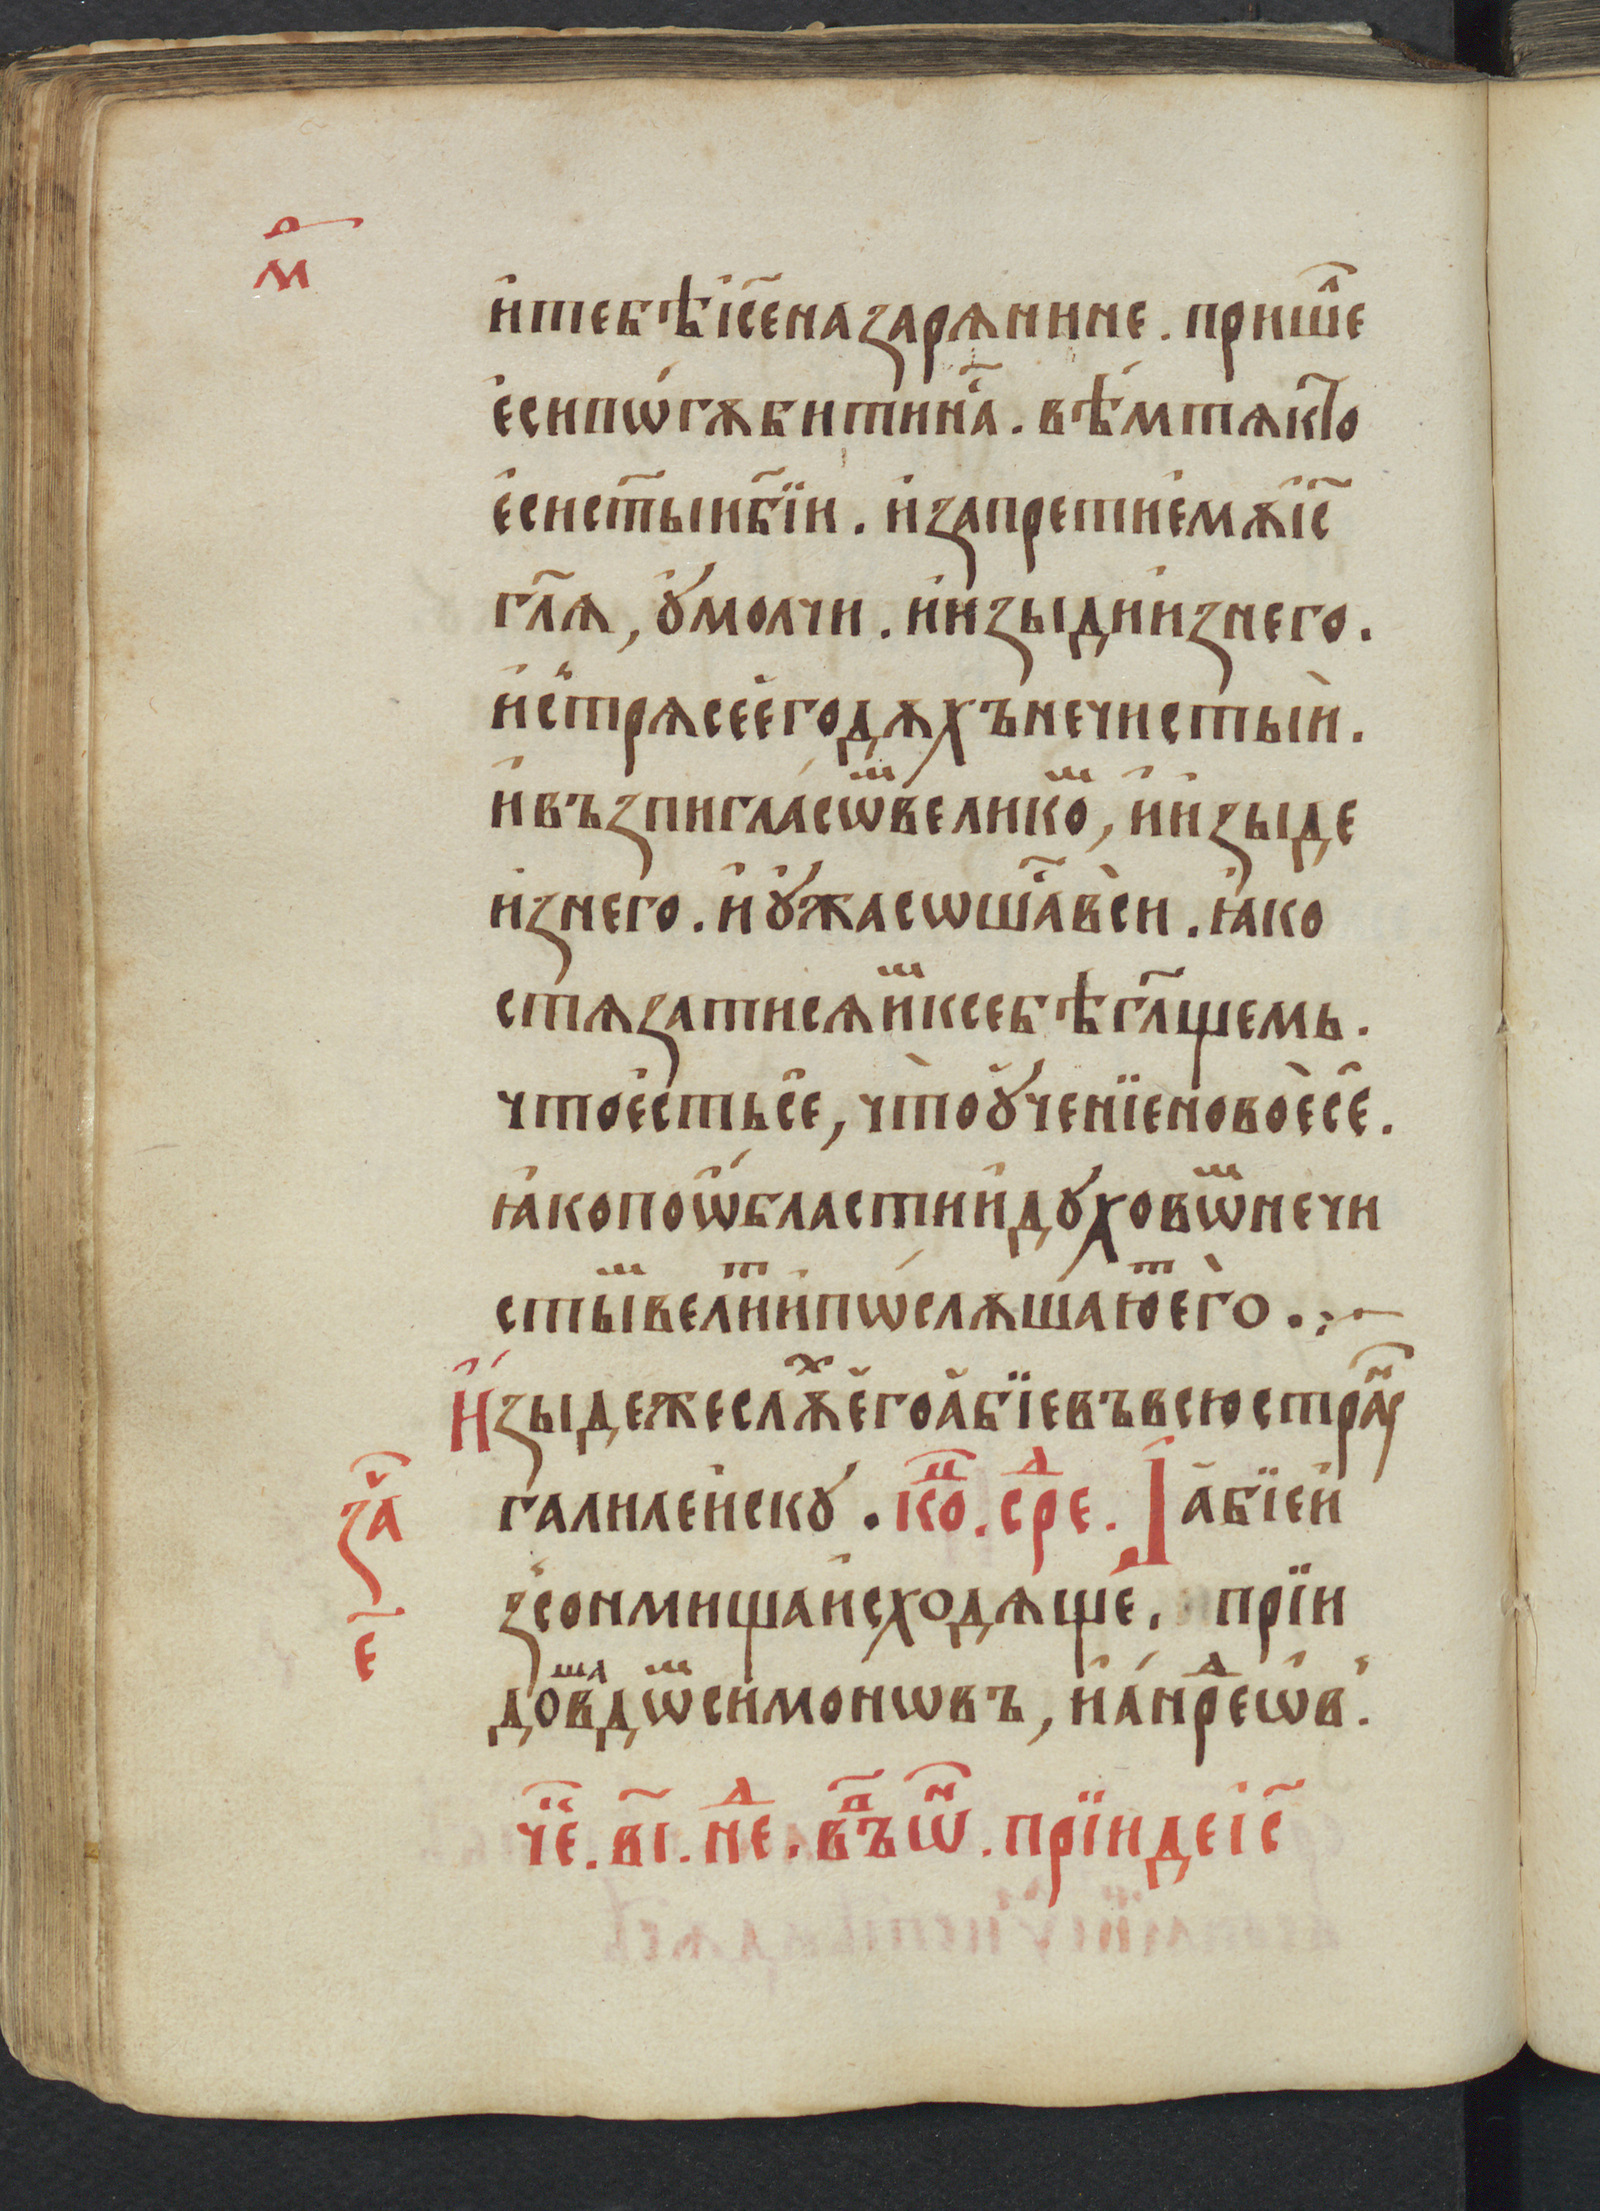 м҃д
и҆ тебѣ і҆с҃е назарѧнине . прише̑
є҆си пѡ́гꙋбити на̑ . вѣ́м тѧ кт҃о
є҆си ст҃ыи бж҃їи . и҆ запрети є҆мꙋ і҆с҃
гл҃ѧ , ᲂу҆молчи . и҆ и҆зыди и҆з него .
и҆ сⷮтрѧсе є҆го дꙋхъ нечистыи̇̀ .
и҆ въ зпи гла́сѡⷨ велико́ⷨ , и҆ и҆зыде
и҆з него . и҆ ᲂу҆жасѡша̑ вси . ꙗ҆ко
стѧзатисѧ и҆ⷨ к себѣ гл҃щемь .
что є҆сть се̑ , что̀ ᲂу҆ченїе новоѐ се̑ .
ꙗ҆ко по ѡ҆бласти и҆ дꙋховѡⷨ нечи
стыⷨ велиⷮ и҆ пѡ́слꙋшаюⷮ є҆го̀ . :~
И҆зыде же слꙋⷯ є҆го а҆бїе въ всю страⷩ
галилеи҆скꙋ . коⷩ҇ . среⷣ . І а҆бїе и҆
з̾ сонмища и҆сходѧще̑ . прїи
доша в доⷨ симонѡвъ , и҆ а҆нреⷣѡ̑в .
че̑ . в҃і . неⷣ . въ ѡ҆ⷩ . прїиде і҆с҃
заⷱ
є҃